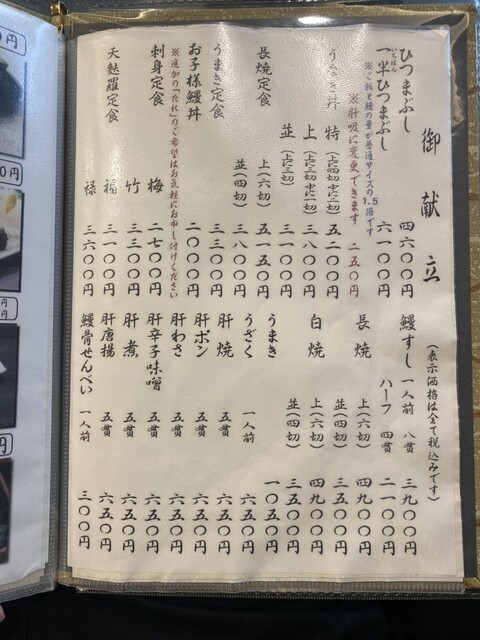 御献立
(表示価格は全て税込みです)
ひつまぶし 四六〇〇円
一半ひつまぶし 六一〇〇円
※ご飯と鰻の量が普通サイズの1.5倍です
※肝吸に変更できます 二五〇円
うなぎ丼 特 五二〇〇円
上 三八〇〇円
並(上三切) 三一〇〇円
長焼定食 上(六切) 五一五〇円
並(四切) 三八〇〇円
うまき定食 三三〇〇円
お子様鰻丼 二〇〇〇円
※追加の「たれ」のご希望はお気軽にお申し付けください
刺身定食 梅 二七〇〇円
竹 三三〇〇円
天麩羅定食 福 三一〇〇円
禄 三六〇〇円
鰻すし 一人前 八貫 三九〇〇円
ハーフ 四貫 二一〇〇円
長焼 上(六切) 四九〇〇円
並(四切) 三五〇〇円
白焼 上(六切) 四九〇〇円
並(四切) 三五〇〇円
うまき 一〇五〇円
うざく 一人前 六五〇円
肝焼 五貫 六五〇円
肝ポン 五貫 六五〇円
肝わさ 五貫 六五〇円
肝辛子味噌 五貫 六五〇円
肝煮 五貫 六五〇円
肝唐揚 五貫 六五〇円
鰻骨せんべい 一人前 三〇〇円